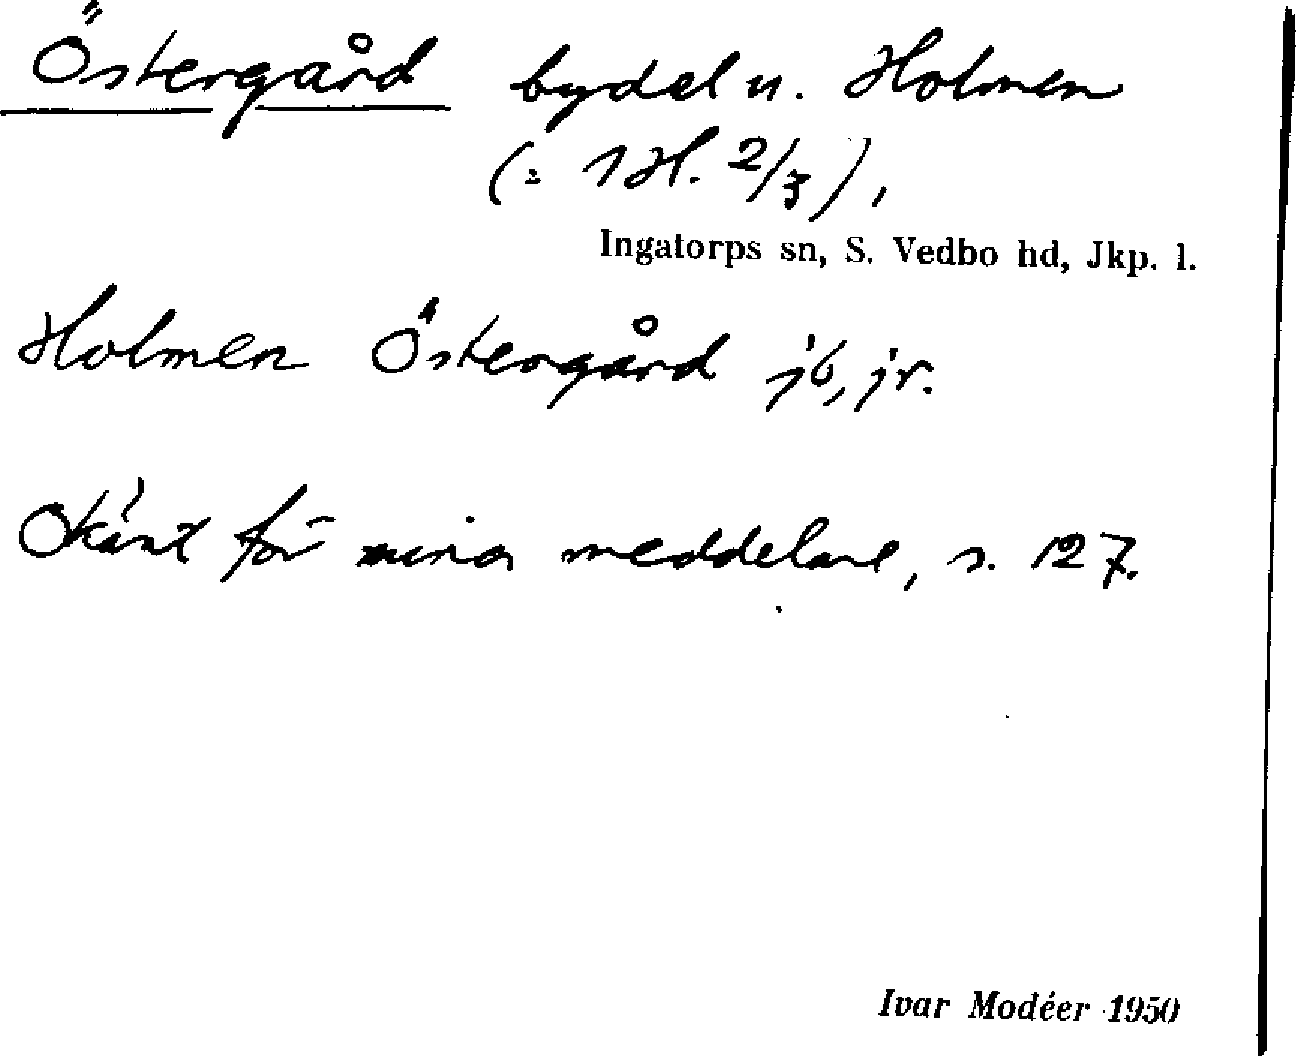 Östergård bydel u. Holmen
(= 1 H. 2/3),
Ingatorps sn, S. Vedbo hd, Jkp. l.
Holmen Östergård jb, jr.
Okänt för mina meddelare, s. 127.
Ivar Modéer 1950